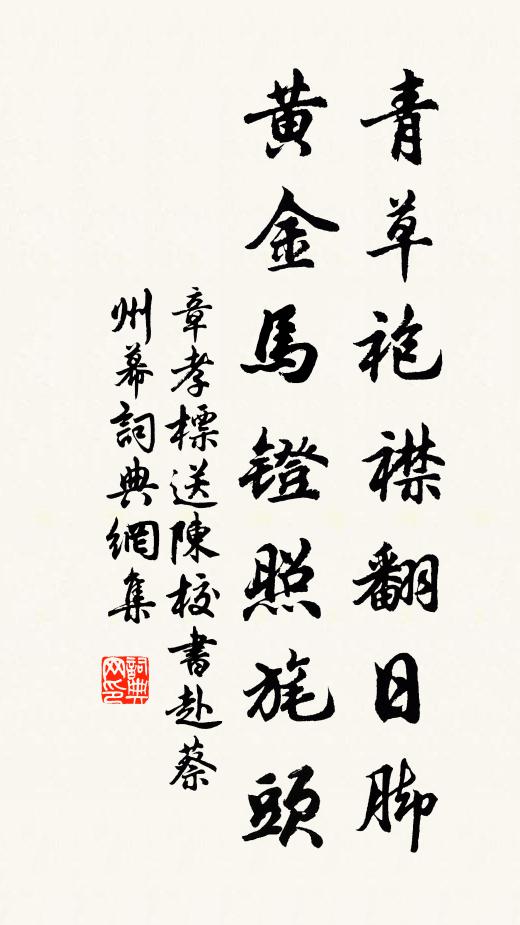 青草袍襟翻日脚
黄金馬鐙照旄頭
章孝標送陳校書赴蔡
州幕詞典網集
詞典网印